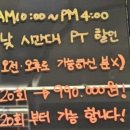 AM10:00 ~ PM 4:00
낮 시간대 PT 할인
오전 오후로 가능하신 분 X)
20회 → 990,000원!
20회 부터 가능 합니다!